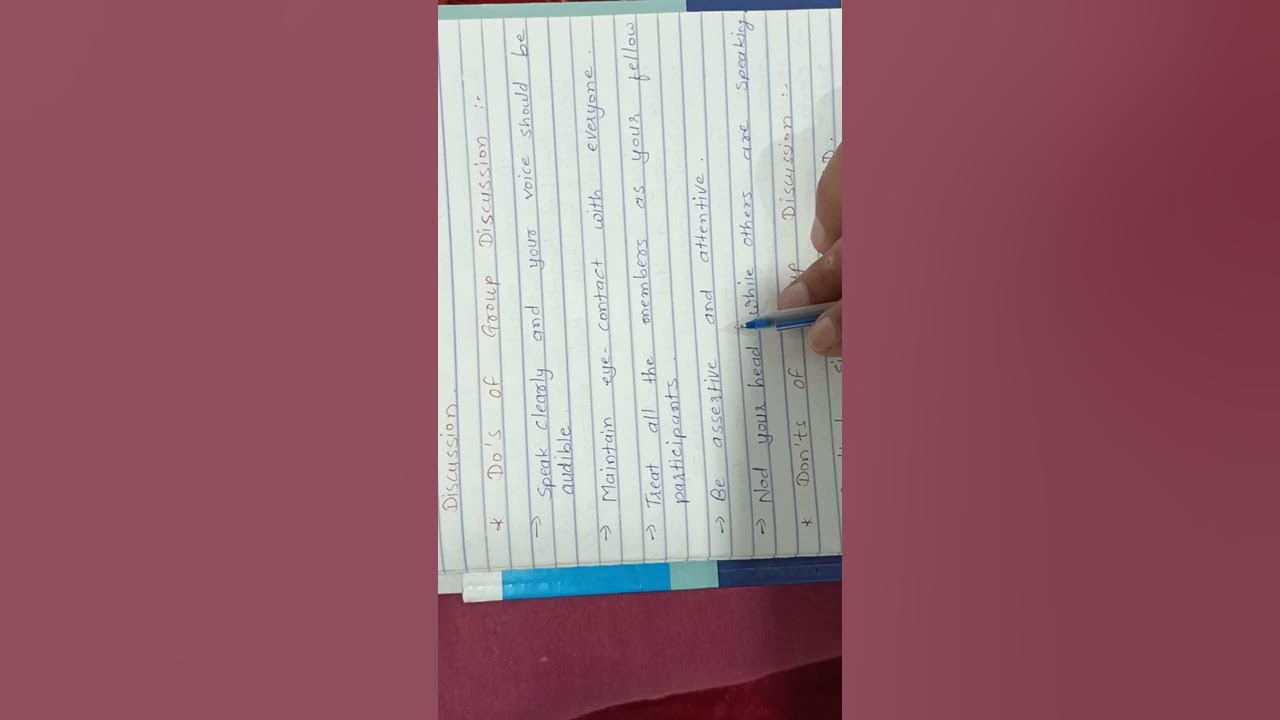 Discussion.
* Do's of Group Discussion :-
→ Speak clearly and your voice should be
audible.
→ Maintain eye-contact with everyone.
→ Treat all the members as your fellow
participants.
→ Be assertive and attentive.
→ Nod your head while others are speaking.
* Don'ts of Discussion :-